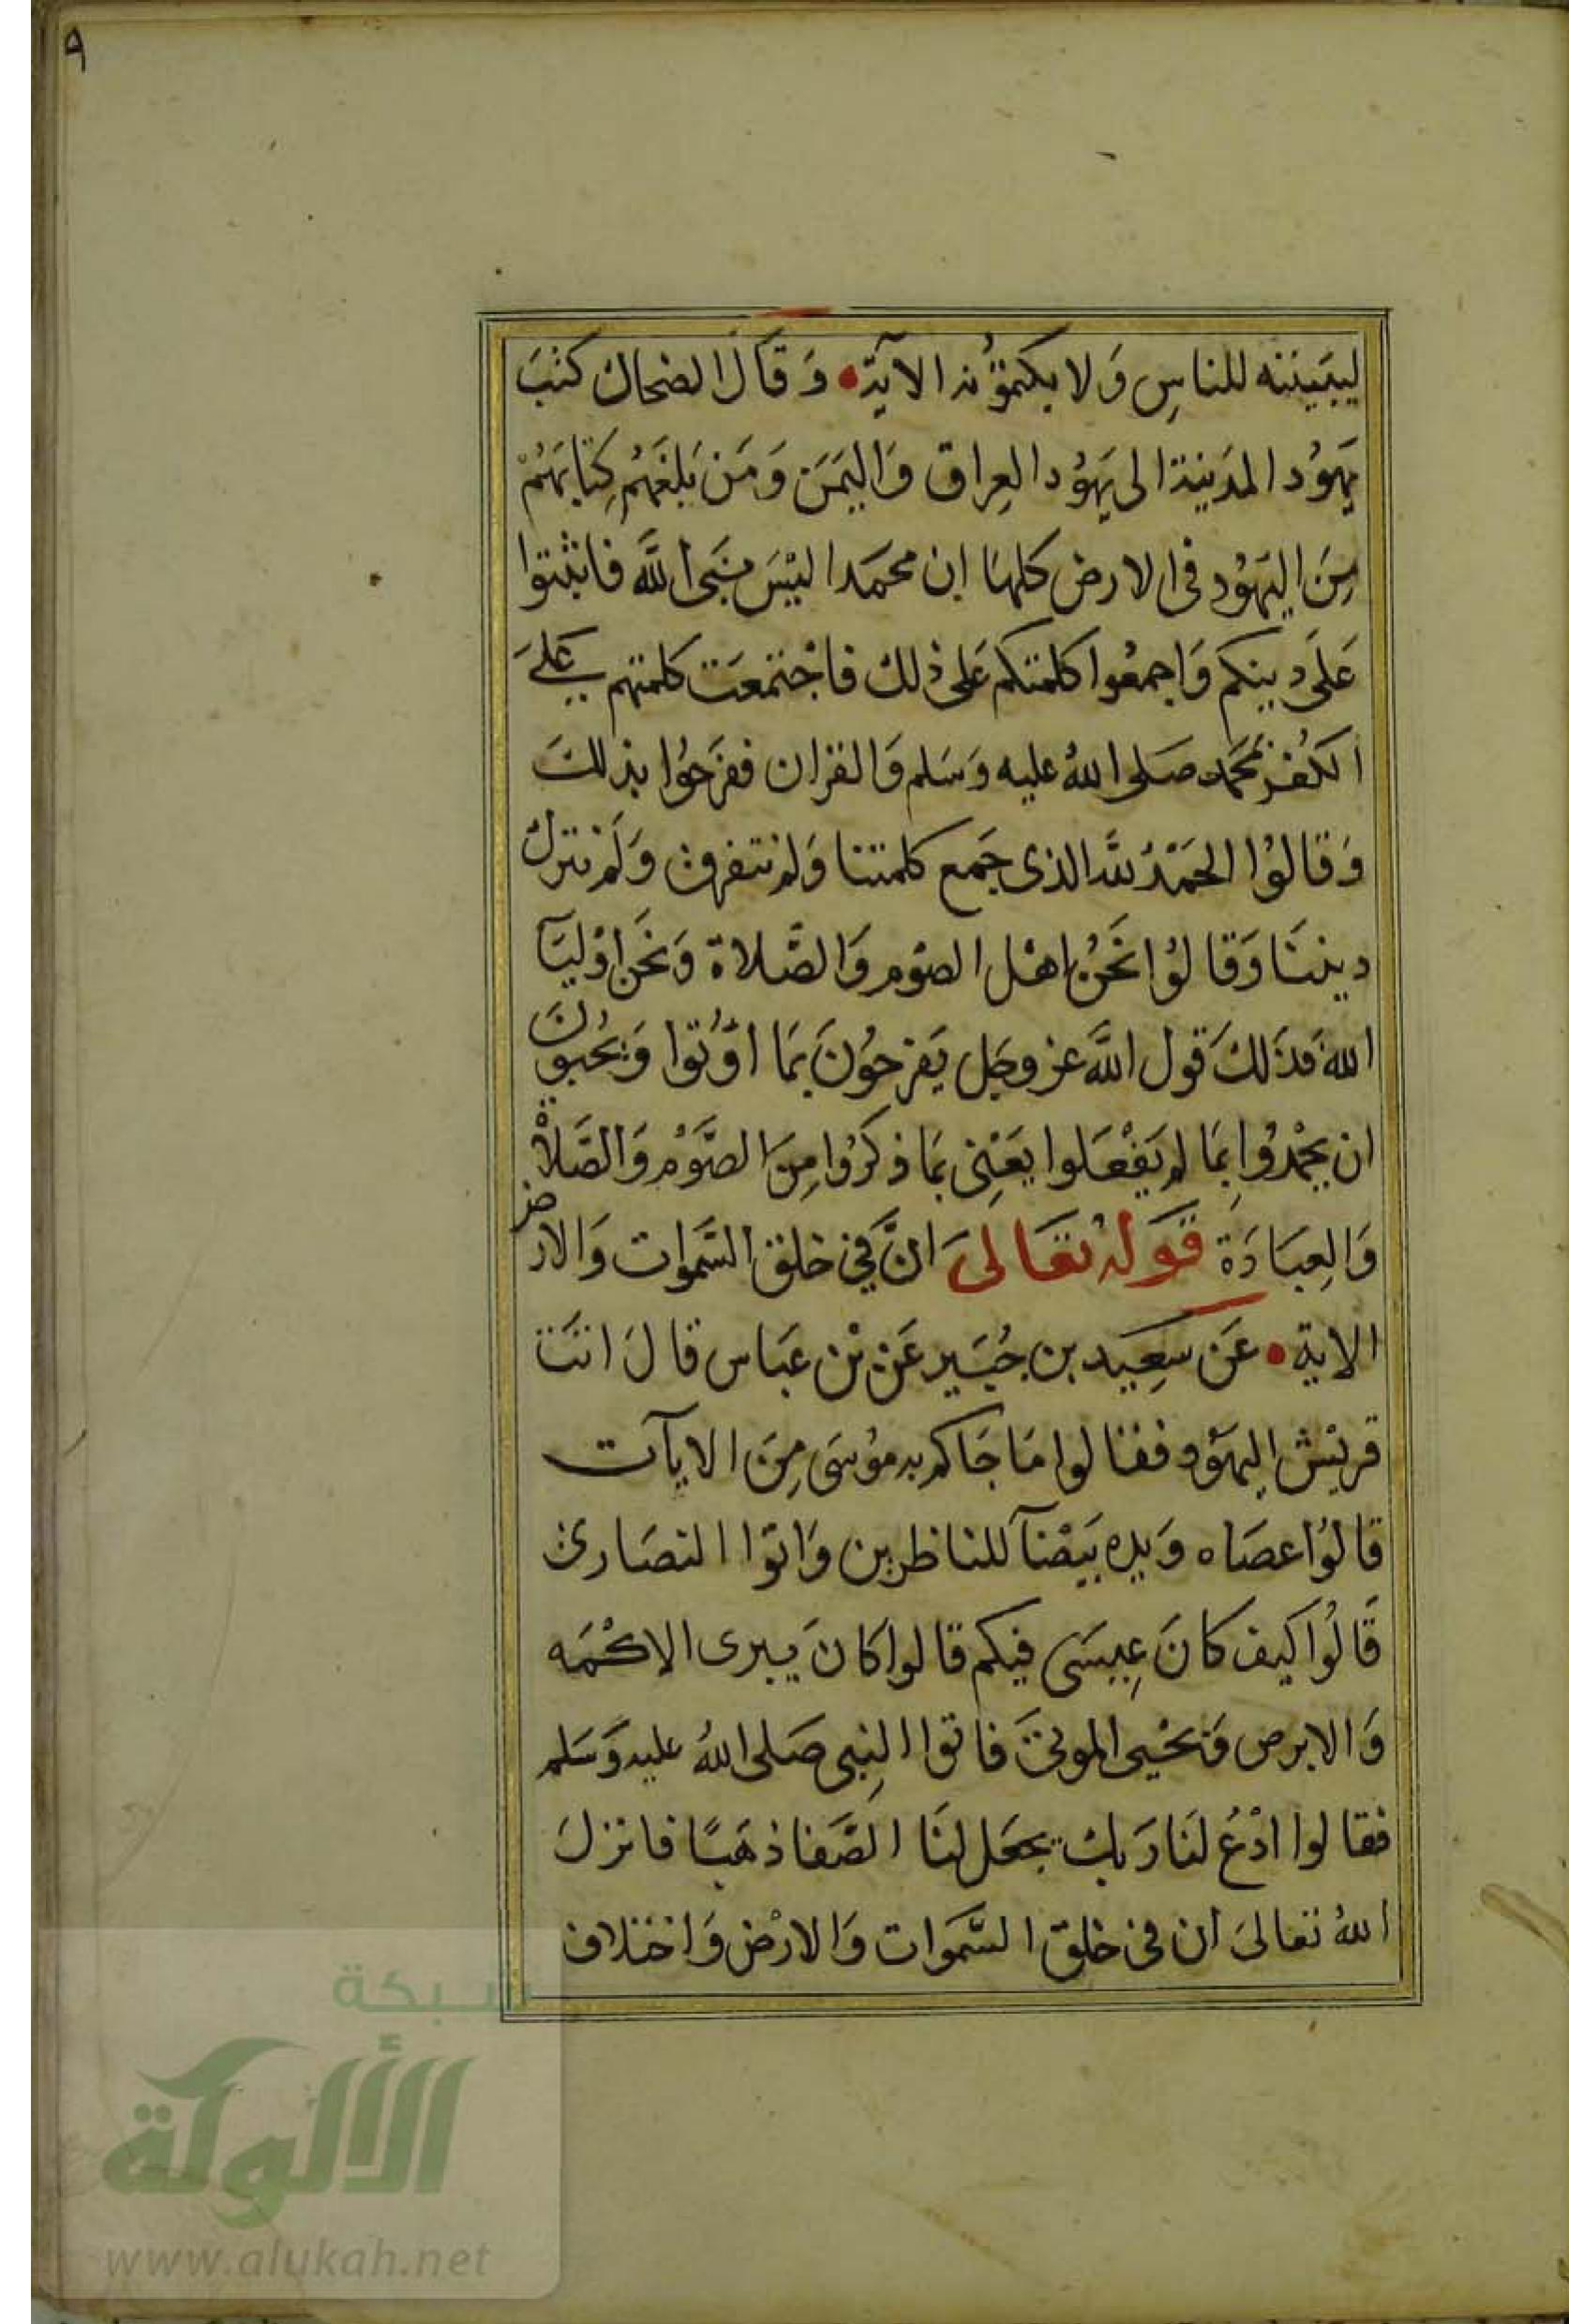 ٩
ليبيننه للناسِ وَلا يكتمُونه الآية وَقَالَ الضحاك كتبَ
يَهوُد المدَينة الى يَهوُد العِراق وَاليَمَن وَمَن بَلغَهُم كِتابَهُمْ
مِنَ اليَهوُد فى الارض كلهَا ان محمَدا ليْسَ نبَى اللَّه فاثبتوا
عَلَى دينكم وَاجمعُوا كلمتكم عَلى ذلك فاجْتمعَت كلمتهم عَلىَ
الكُفر بمُحَمد صَلى اللهُ عليه وَسَلم وَالقران ففرَحُوا بذلكَ
وَقالوُا الحَمْدُ للَّه الذى جَمع كلمتنا وَلم نتفرق وَلَم نترك
ديننَا وَقالوُا نحَنُ اهْل الصَوْم وَالصَّلاة وَنحَن اوْليَآ
الله فذَلكَ قول اللَّه عز وجَل يَفرحوُنَ بمَا اوُتوا وَيحُبوُنَ
ان يحْمدُوا بِمَا لم يَفْعَلوا يعَنِى بمَا ذكرُوا مِنَ الصَّوْم وَالصَّلاة
وَالعِبَادَة قَولهُ تعَالىَ انَّ فِى خلق السَّموَات وَالارض
الاية عَن سَعِيد بن جُبَير عَن بْن عَبَاس قالَ اتَتَ
قريْش اليهَوُد فقالوا مَا جَاكم به موُسَى مِنَ الايآت
قالوُا عصَاه وَيده بيَضآ للناظرين وَاتوَا النصَارى
قَالُوا كيف كانَ عِيسَى فيكم قالوا كانَ يبرى الاكْمَه
وَالابرص وَيحْيى الموتىَ فاتوا النِبى صَلى اللهُ عليه وَسَلم
فقالوا ادْعُ لنَا رَبك يجعَل لنَا الصَّفا ذهَبًا فانزلَ
اللهُ تعالىَ ان فى خلق السَّموَات وَالارْض وَاختلاف
شبكة
الألوكة
www.alukah.net